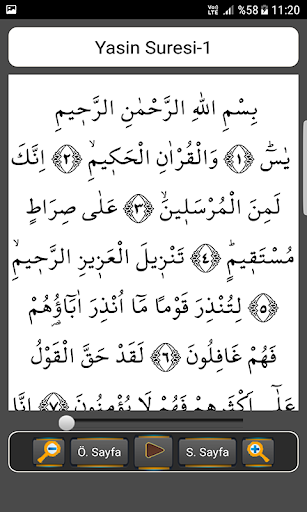 %58 11:20
Yasin Suresi-1
بِسْمِ اللهِ الرَّحْمٰنِ الرَّحٖيمِ
يٰسٓ ﴿١﴾ وَالْقُرْاٰنِ الْحَكٖيمِۙ ﴿٢﴾ اِنَّكَ
لَمِنَ الْمُرْسَلٖينَۙ ﴿٣﴾ عَلٰى صِرَاطٍ
مُسْتَقٖيمٍؕ ﴿٤﴾ تَنْزٖيلَ الْعَزٖيزِ الرَّحٖيمِۙ
﴿٥﴾ لِتُنْذِرَ قَوْمًا مَٓا اُنْذِرَ اٰبَٓاؤُ۬هُمْ
فَهُمْ غَافِلُونَ ﴿٦﴾ لَقَدْ حَقَّ الْقَوْلُ
عَلٰٓى اَكْثَرِهِمْ فَهُمْ لَا يُؤْمِنُونَ ﴿٧﴾ اِنَّا
Ö. Sayfa S. Sayfa